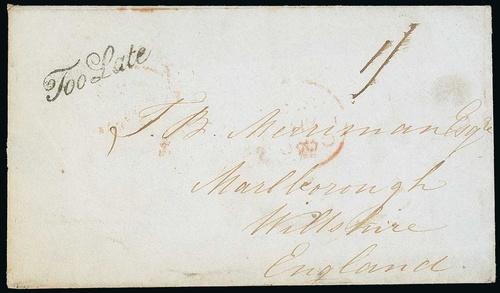 Too Late
1/
T. B. Merriman Esqre
Marlborough
Wiltshire
England